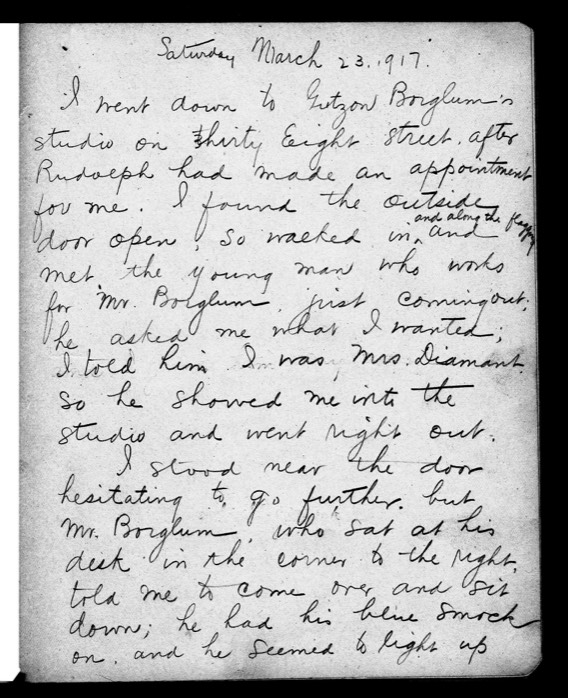 Saturday March 23, 1917.
I went down to Gutzon Borglum's
studio on thirty Eight street, after
Rudolph had made an appointment
for me. I found the outside
and along the flagging
door open, so walked in, and
met the young man who works
for Mr. Borglum, just coming out;
he asked me what I wanted;
I told him I was, Mrs. Diamant.
so he showed me into the
studio and went right out.
I stood near the door
hesitating to go further, but
Mr. Borglum, who sat at his
desk in the corner to the right,
told me to come over and sit
down; he had his blue smock
on, and he seemed to light up